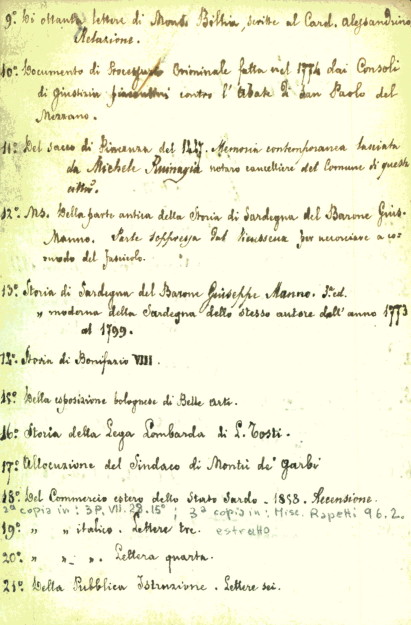 9º. Di ottanta lettere di Monti Bibbia, scritte al Card. Alessandrino
Relazione.
10º. Documento di Criminale fatta nel 1774 dai Consoli
di giustizia piacentini contro l'Abate di San Paolo del
Mezzano.
11º. Del sacco di Piacenza del 1447. Memoria contemporanea lasciata
da Michele Ruinagia notaro cancelliere del Comune di questa
città.
12º. Ms. Della parte antica della Storia di Sardegna del Barone Gius.
Manno. Parte soppressa dal Vieusseux per accorciare a co-
modo del fascicolo.
13º. Storia di Sardegna del Barone Giuseppe Manno. 3ª ed.
„ moderna della Sardegna dello stesso autore dall'anno 1773
al 1799.
14º. Storia di Bonifazio VIII.
15º. Della esposizione bolognese di Belle Arti.
16º. Storia della Lega Lombarda di L. Tosti.
17º. Allocuzione del Sindaco di Monti de' Garbi
18º. Del Commercio estero dello Stato Sardo - 1858. Recensione.
2ª copia in: 3P.VII.28.15º ; 3ª copia in: Misc. Rapetti 96.2.
19º. „ „ italico. Lettere tre. estratto
20º. „ „ „. Lettera quarta.
21º. Della Pubblica Istruzione. Lettere sei.